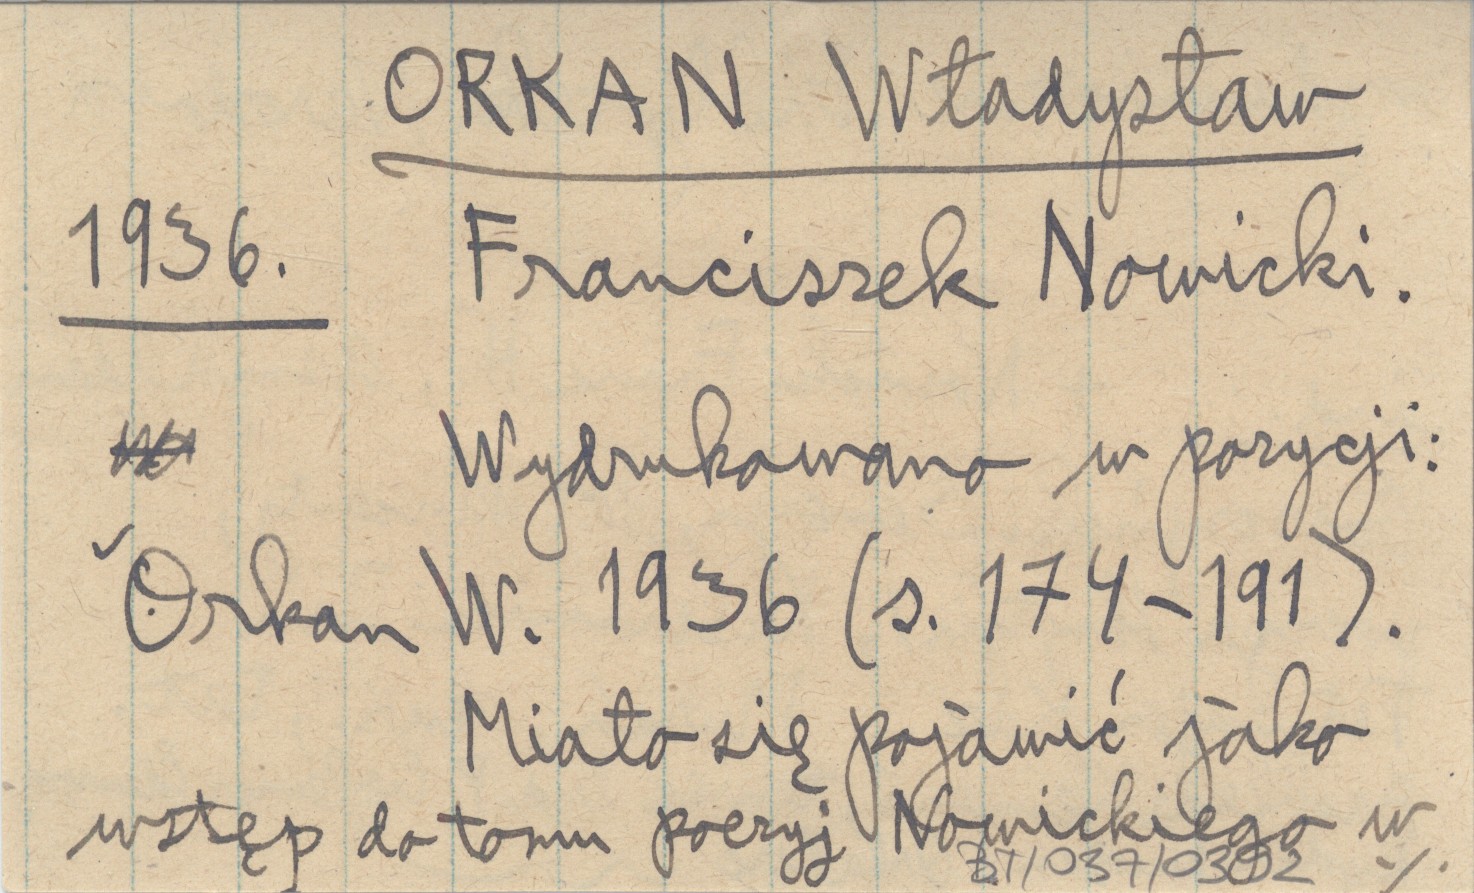 ORKAN Władysław
1936. Franciszek Nowicki.
Wydrukowano w pozycji:
Orkan W. 1936 (s. 174-191).
Miało się pojawić jako
wstęp do tomu poezyj Nowickiego w
BT/037/0302 ./.